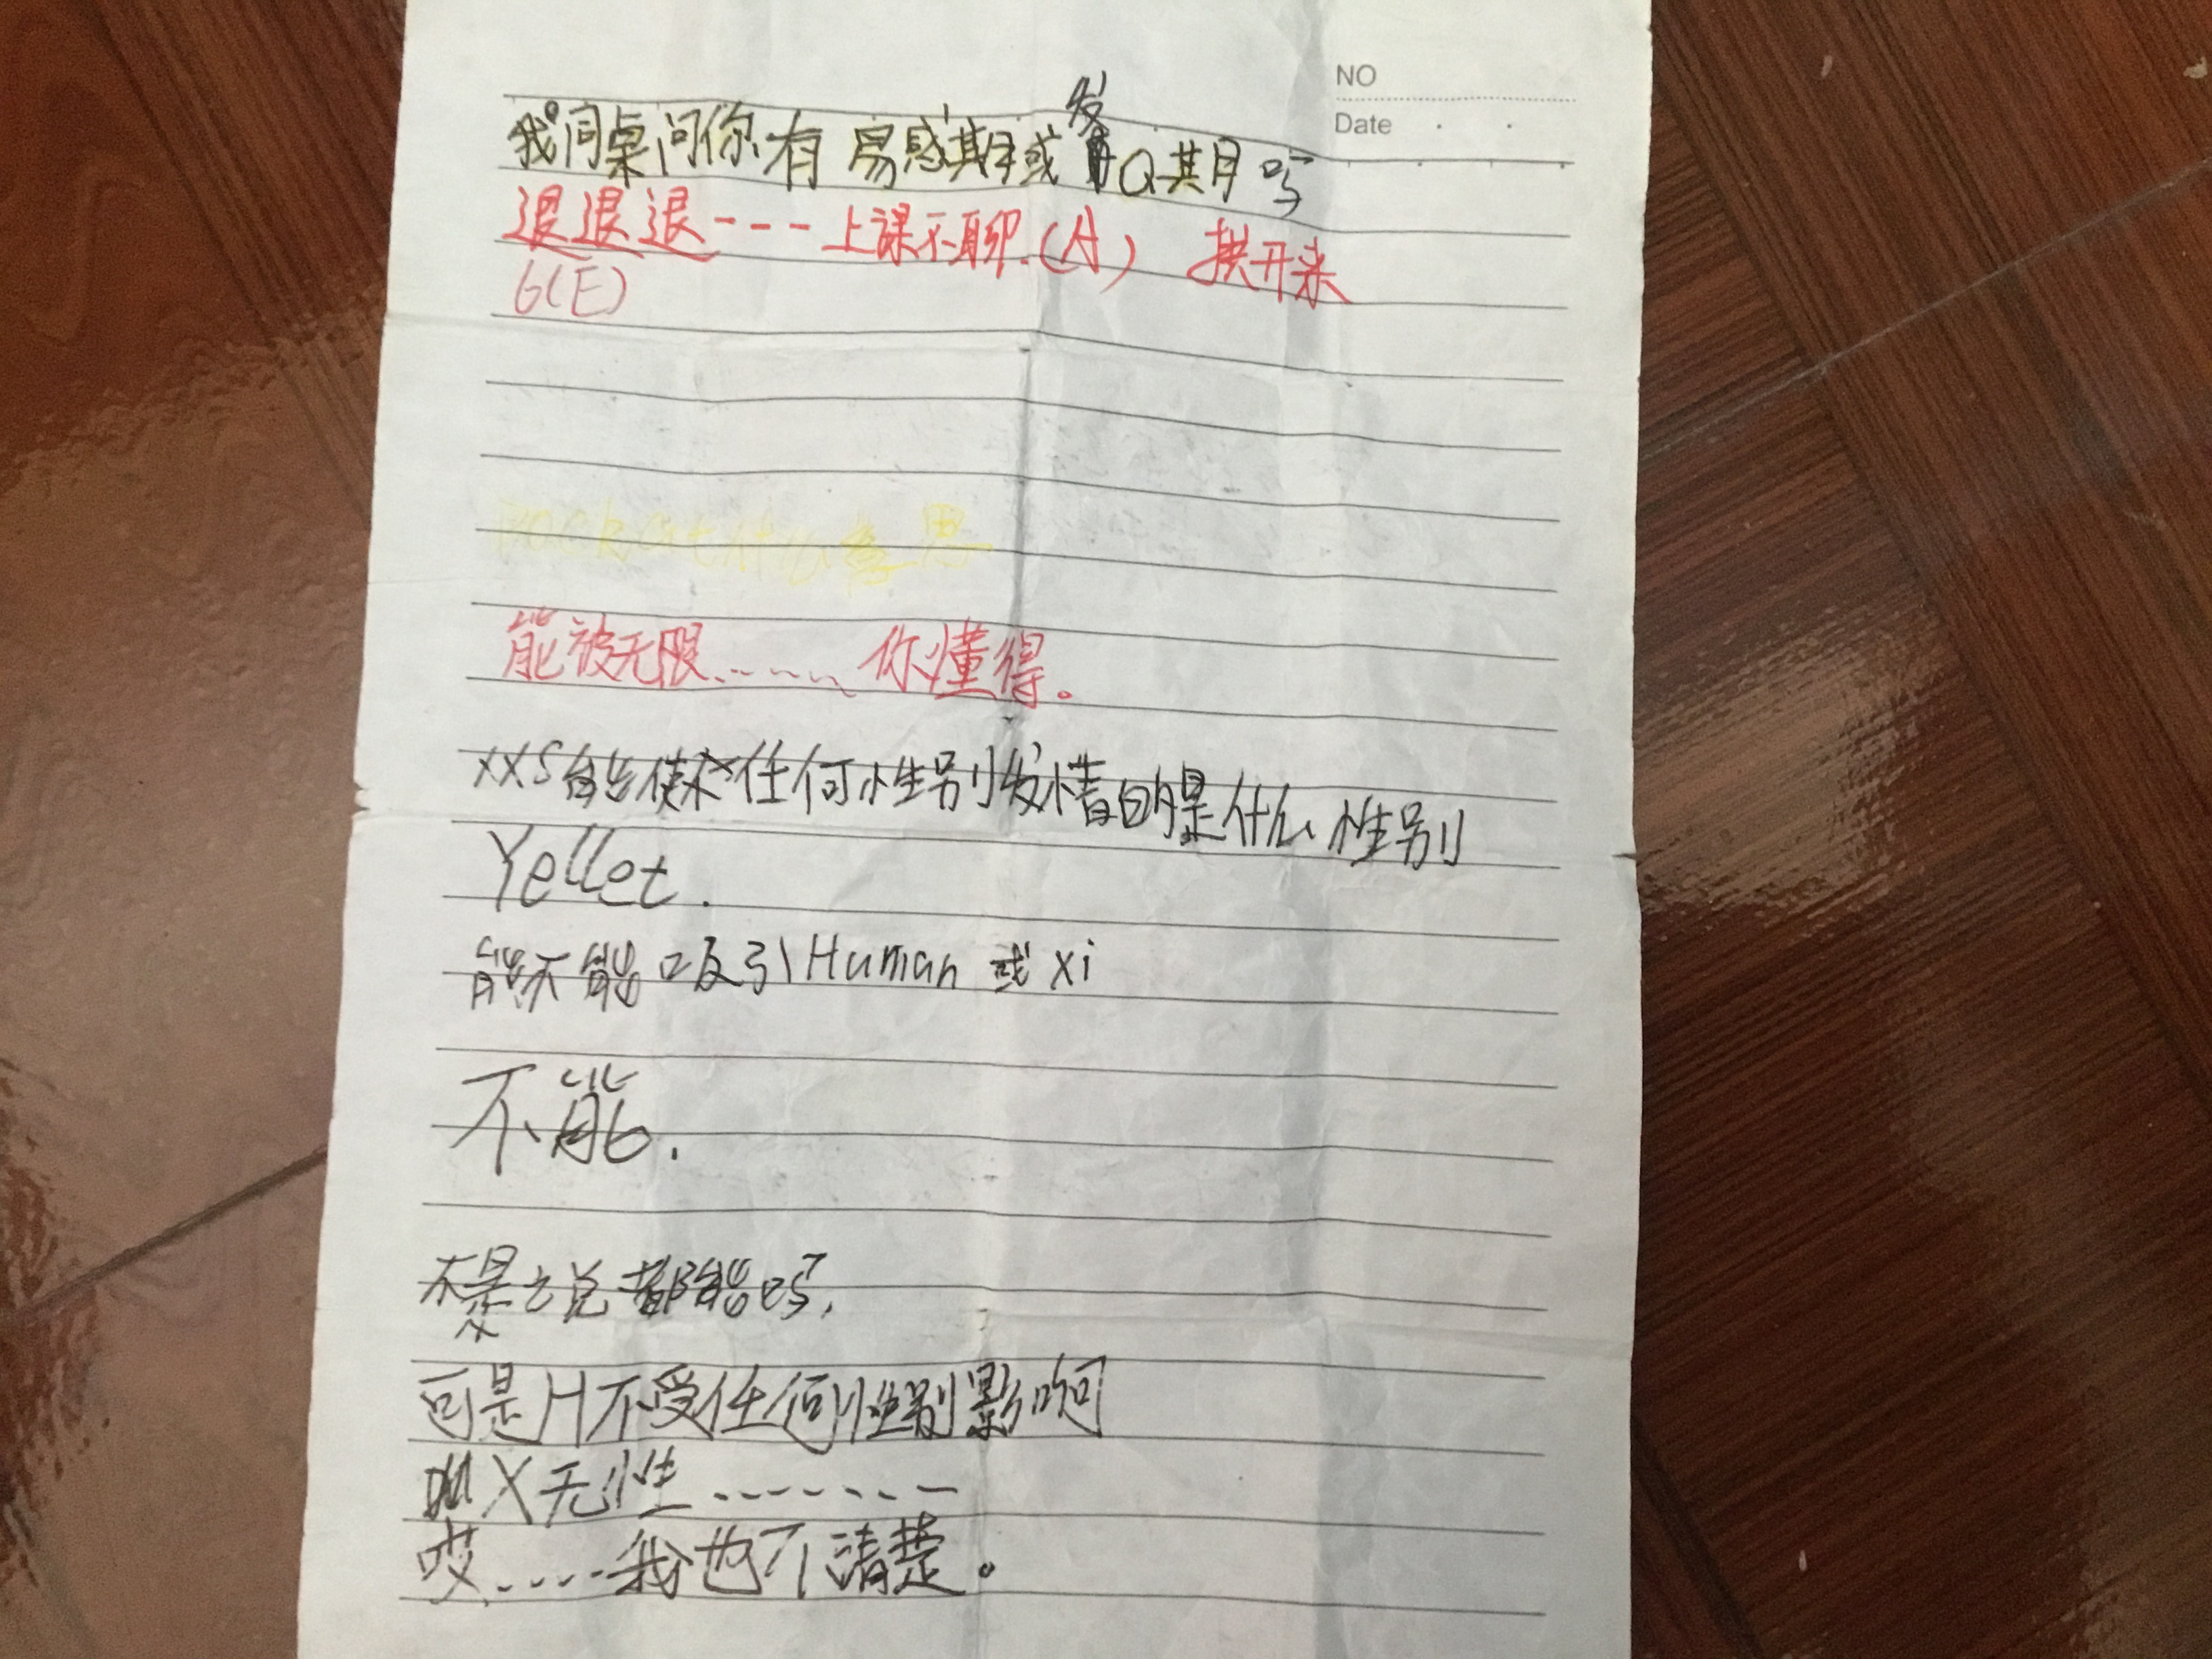 NO
Date
我同桌问你有易感期或发Q期吗
退退退---上课不聊.(A) 拱开来
6(E)
什么意思
能被无限……你懂得。
XXS能使任何性别发情的是什么性别
Yellet.
能不能吸引Human或xi
不能.
不是说都能吗,
可是H不受任何性别影响
X无性-------
哎....我也不清楚。